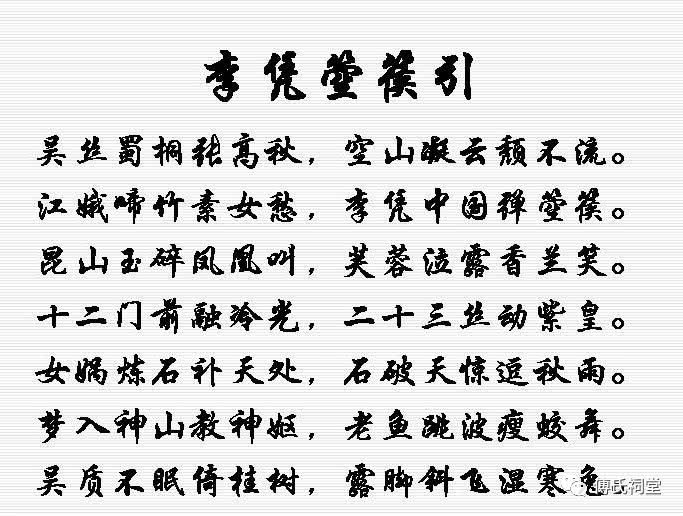 李凭箜篌引
吴丝蜀桐张高秋，空山凝云颓不流。
江娥啼竹素女愁，李凭中国弹箜篌。
昆山玉碎凤凰叫，芙蓉泣露香兰笑。
十二门前融冷光，二十三丝动紫皇。
女娲炼石补天处，石破天惊逗秋雨。
梦入神山教神妪，老鱼跳波瘦蛟舞。
吴质不眠倚桂树，露脚斜飞湿寒兔。
傅氏祠堂